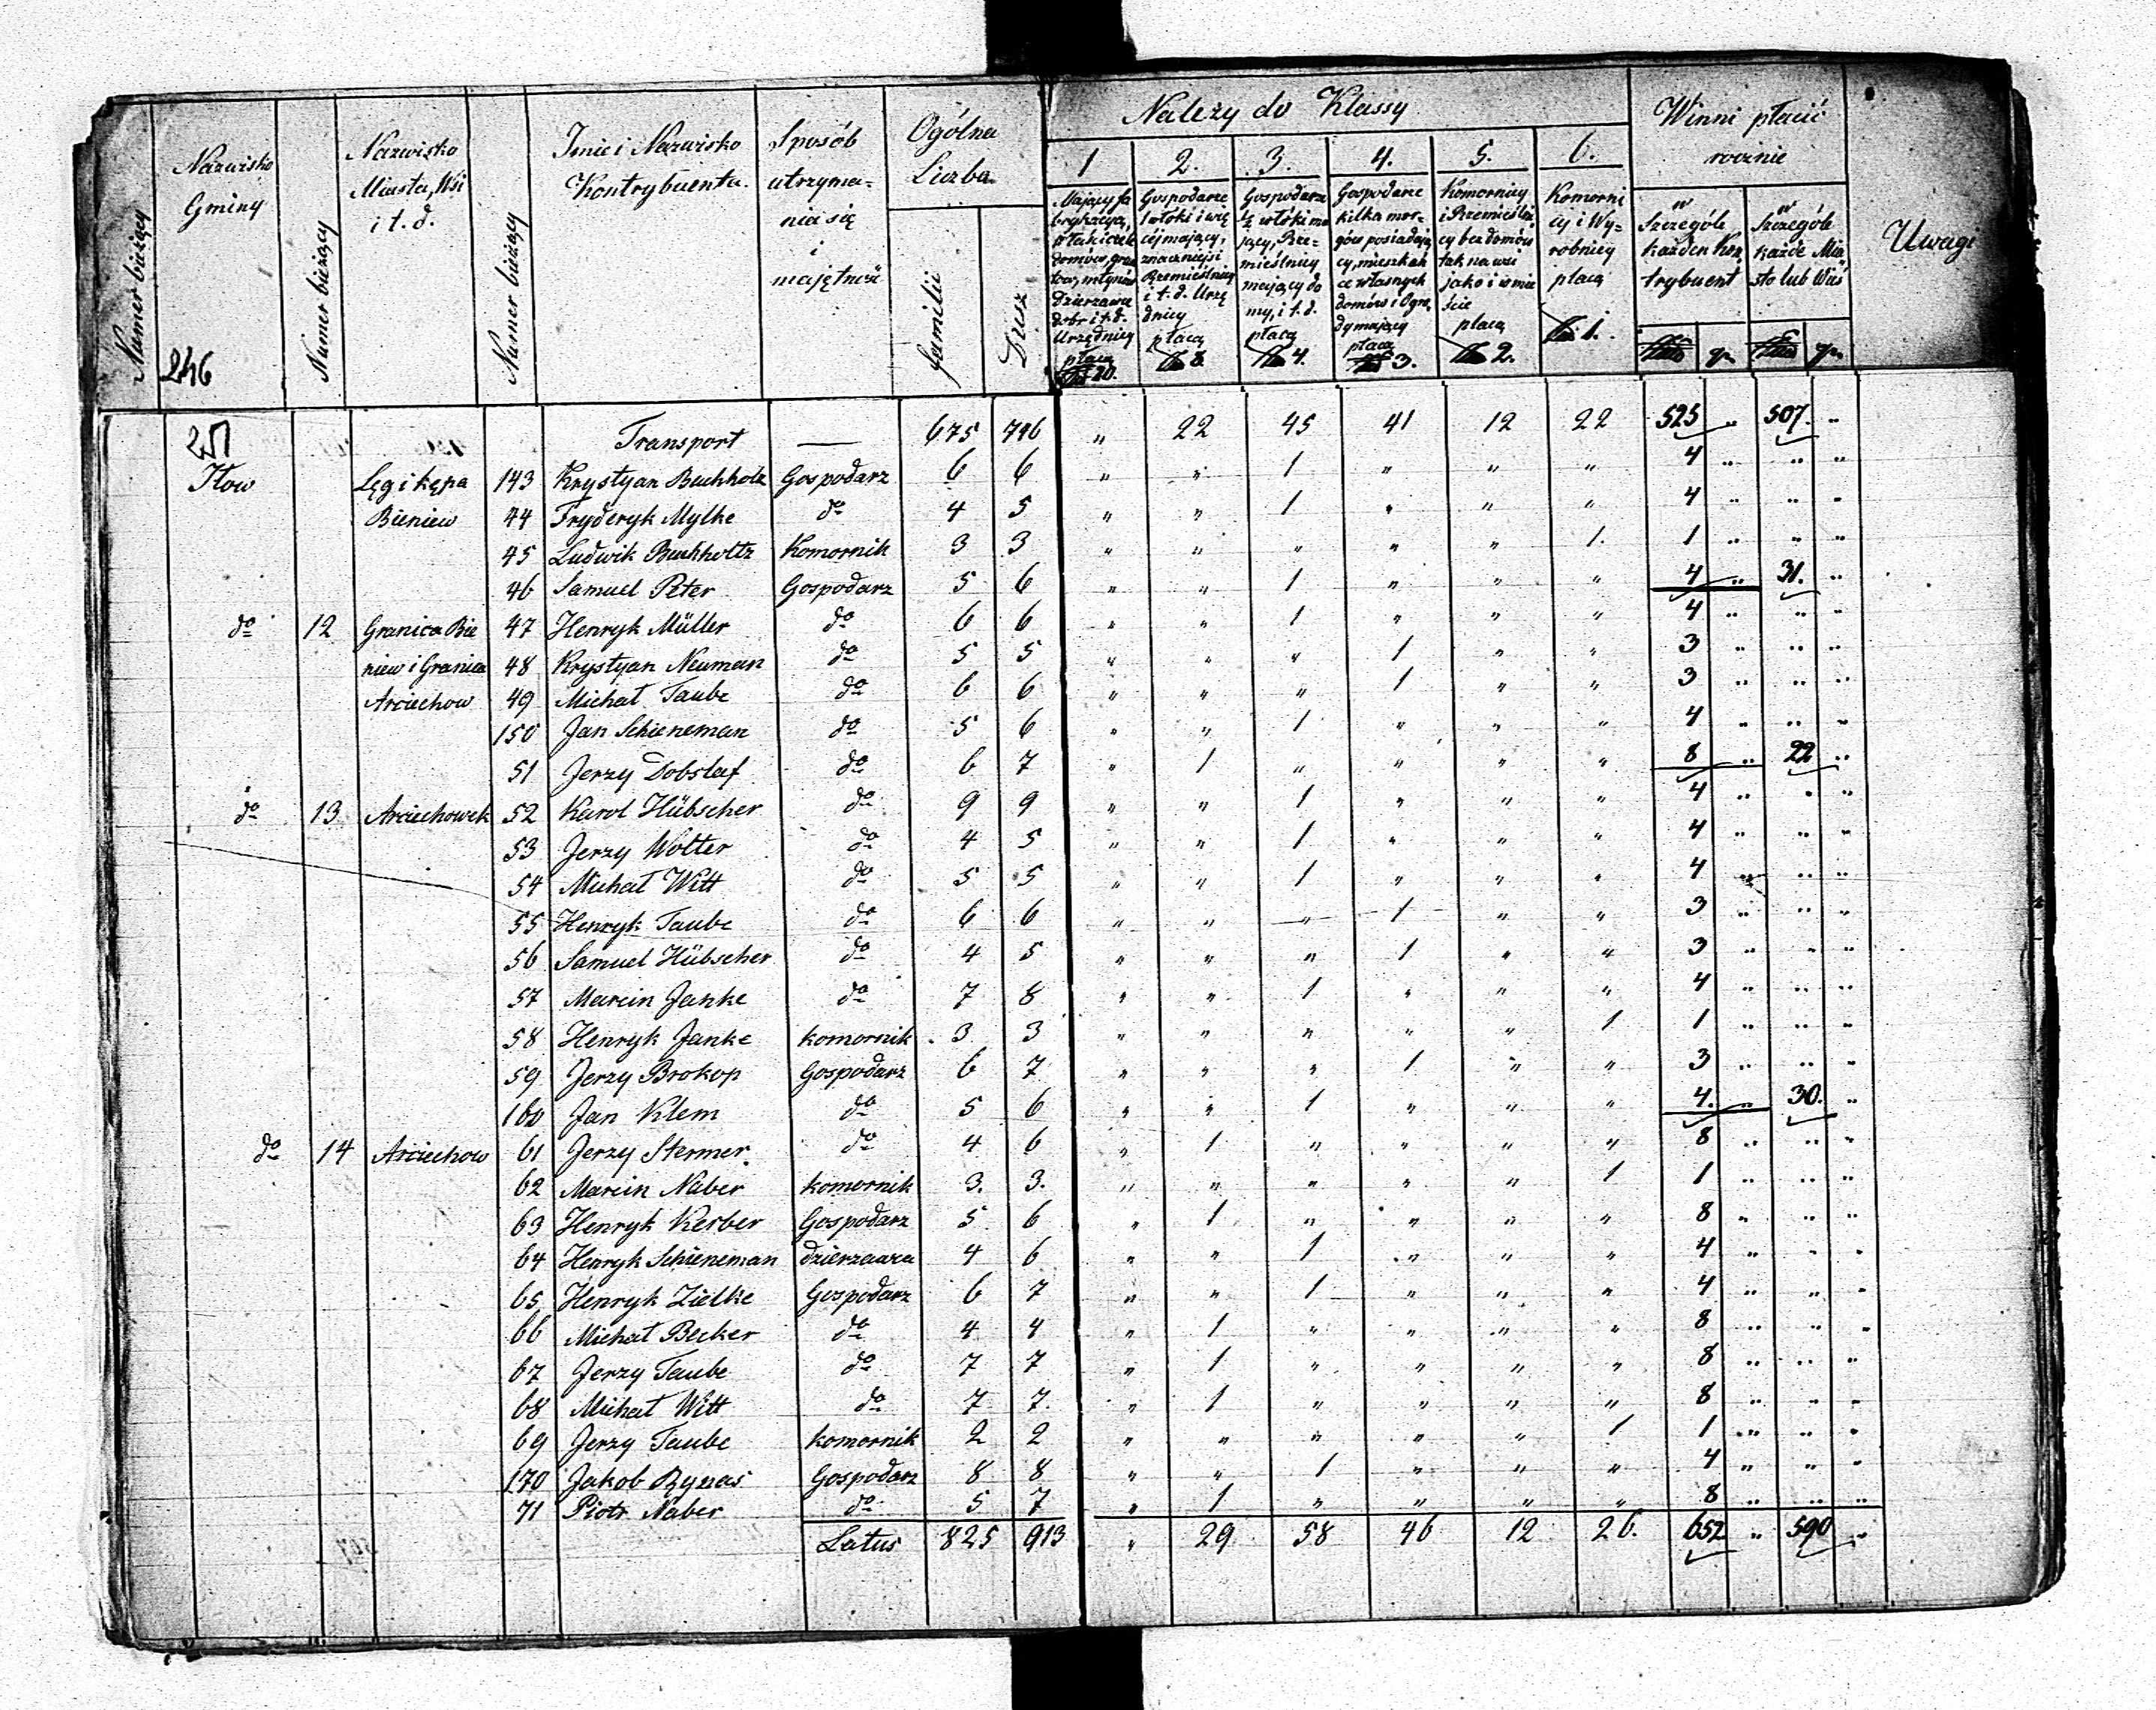 Numer bieżący
Nazwisko Gminy
246
Numer bieżący
Nazwisko Miasta, Wsi i t. d.
Numer bieżący
Imie i Nazwisko Kontrybuenta.
Sposób utrzyma= nia się i majętność
Ogólna Liczba
familii
Dusz
Należy do Klassy
1 2. 3. 4. 5. 6.
Mający fa
bryk
domów
młynów
Dzierzawce
dobr i t. d.
Urzędnicy
płacą
20.
Gospodarze
1 włóki i wię
cej mający,
znaczniejsi
Rzemieślnicy
i t. d. Urzę
dnicy
płacą
8
Gospodarze
½ włóki ma
jący, Rze=
mieślnicy
mający do
my, i t. d.
płacą
4.
Gospodarze
kilka mor=
gów posiadają
cy, mieszkań
ce własnych
domów i Ogro
dy mający
płacą
3.
Komornicy
i Rzemieślni
cy bez domów
tak na wsi
jako i w mie
ście
płacą
2.
Komorni
cy i Wy=
robnicy
płacą
1.
Winni płacić rocznie
w Szczególe każden Kon trybuent
gr.
w Szczególe każde Mia sto lub Wieś
gr.
Uwagi
247
Transport — 675 796 " 22 45 41 12 22 525 " 507. "
Iłow Łęg i Kępa 143 Krystyan Buchholz Gospodarz 6 6 " " 1 " " " 4 " " "
Bieniew 44 Fryderyk Mylke do 4 5 " " 1 " " " 4 " " "
45 Ludwik Buchholtz Komornik 3 3 " " " " " 1. 1 " " "
46 Samuel Peter Gospodarz 5 6 " " 1 " " " 4 " 31. "
do 12 Granica Bie 47 Henryk Müller do 6 6 " " 1 " " " 4 " " "
niew i Granica 48 Krystyan Neuman do 5 5 " " " 1 " " 3 " " "
Arciechow 49 Michał Taube do 6 6 " " " 1 " " 3 " " "
150 Jan Schieneman do 5 6 " " 1 " " " 4 " " "
51 Jerzy Dobslaf do 6 7 " 1 " " " " 8 " 22 "
do 13 Arciechowek 52 Karol Hübscher do 9 9 " " 1 " " " 4 " " "
53 Jerzy Wolter do 4 5 " " 1 " " " 4 " " "
54 Michał Witt do 5 5 " " 1 " " " 4 " " "
55 Henryk Taube do 6 6 " " " 1 " " 3 " " "
56 Samuel Hübscher do 4 5 " " " 1 " " 3 " " "
57 Marcin Janke do 7 8 " " 1 " " " 4 " " "
58 Henryk Janke komornik 3 3 " " " " " 1 1 " " "
59 Jerzy Brokop Gospodarz 6 7 " " " 1 " " 3 " " "
160 Jan Klem do 5 6 " " 1 " " " 4. " 30. "
do 14 Arciechow 61 Jerzy Stermer do 4 6 " 1 " " " " 8 " " "
62 Marcin Naber komornik 3. 3. " " " " " 1 1 " " "
63 Henryk Kerber Gospodarz 5 6 " 1 " " " " 8 " " "
64 Henryk Schieneman dzierzawca 4 6 " " 1 " " " 4 " " "
65 Henryk Zielke Gospodarz 6 7 " " 1 " " " 4 " " "
66 Michał Becker do 4 4 " 1 " " " " 8 " " "
67 Jerzy Taube do 7 7 " 1 " " " " 8 " " "
68 Michał Witt do 7 7. " 1 " " " " 8 " " "
69 Jerzy Taube komornik 2 2 " " " " " 1 1 " " "
170 Jakob Rynas Gospodarz 8 8 " " 1 " " " 4 " " "
71 Piotr Naber do 5 7 " 1 " " " " 8 " " "
Latus 825 913 " 29 58 46 12 26. 652 " 590 "